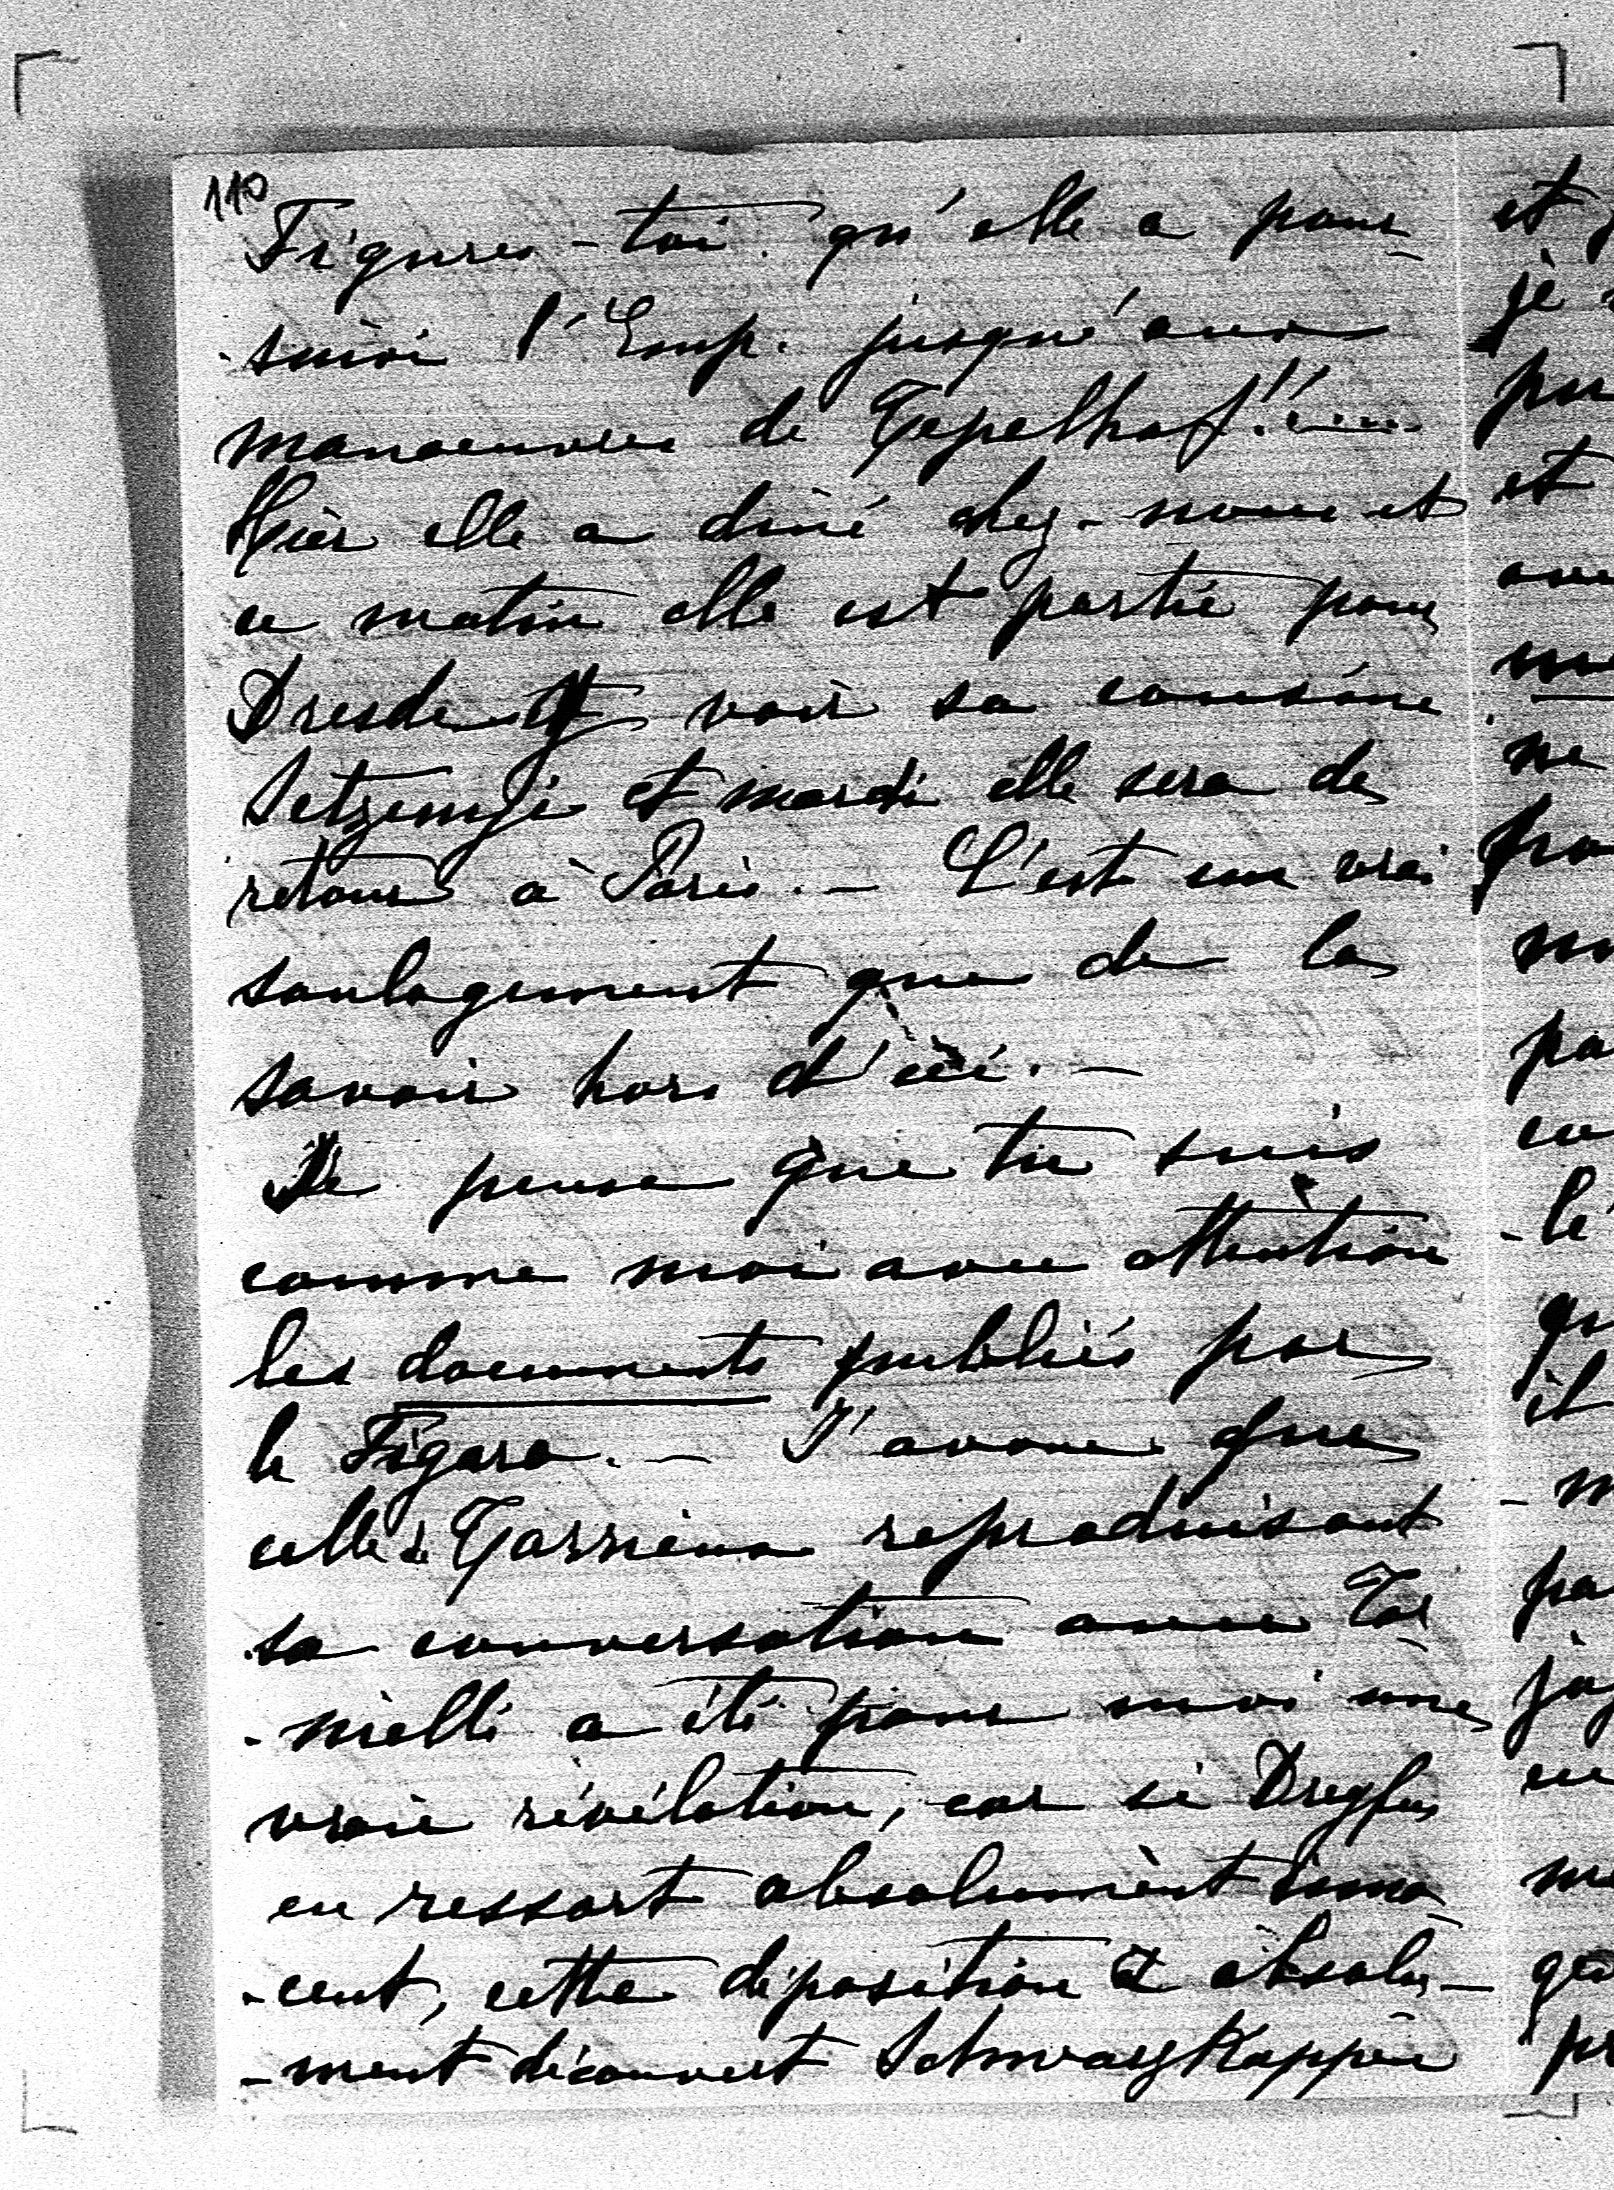 110
Figures-toi qu'elle a pour
suivi l'Emp. jusqu'aux
manoeuvres de Tepelhof!!....
Hier elle a diné chez-nous et
ce matin elle est partie pour
Dresde voir sa cousine
et mardi elle sera de
retour à Paris. — C'est un vrai
soulagement que de la
savoir hors d'ici. —
Je pense que tu suis
comme moi avec attention
les documents publiés par
le Figaro. — J'avoue que
celle de Tarrieux reproduisant
sa conversation avec Tor
-nielli a été pour moi une
vraie révélation, car si Dreyfus
en ressort absolument inno
-cent, cette déposition a absolu-
-ment découvert Schwarzkoppen